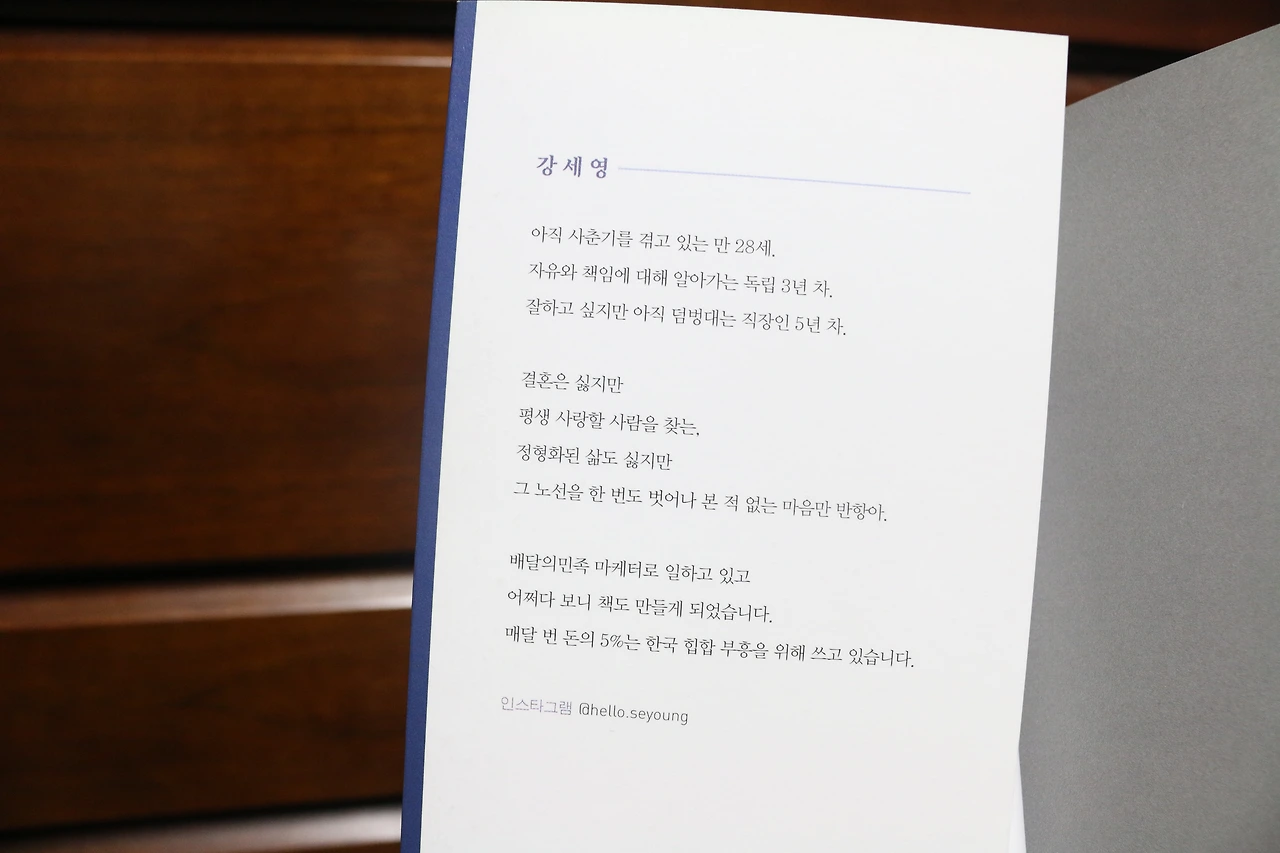 강세영
아직 사춘기를 겪고 있는 만 28세.
자유와 책임에 대해 알아가는 독립 3년 차.
잘하고 싶지만 아직 덤벙대는 직장인 5년 차.
결혼은 싫지만
평생 사랑할 사람을 찾는,
정형화된 삶도 싫지만
그 노선을 한 번도 벗어나 본 적 없는 마음만 반항아.
배달의민족 마케터로 일하고 있고
어쩌다 보니 책도 만들게 되었습니다.
매달 번 돈의 5%는 한국 힙합 부흥을 위해 쓰고 있습니다.
인스타그램 @hello.seyoung